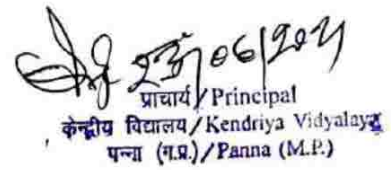 23/06/2021
प्राचार्य/Principal
केन्द्रीय विद्यालय/Kendriya Vidyalaya
पन्ना (म.प्र.)/Panna (M.P.)